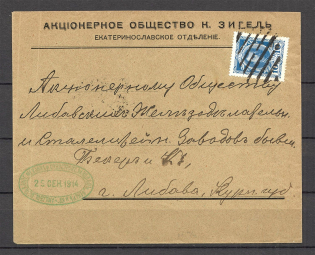 АКЦІОНЕРНОЕ ОБЩЕСТВО К. ЗИГЕЛЬ
ЕКАТЕРИНОСЛАВСКОЕ ОТДѢЛЕНІЕ.
Акціонерному Обществу
Либавскихъ Желѣзодѣлательн.
и Сталелитейн. Заводовъ бывш.
Беккеръ и Ко,
г. Либава, Курл. губ.
25 СЕН 1914